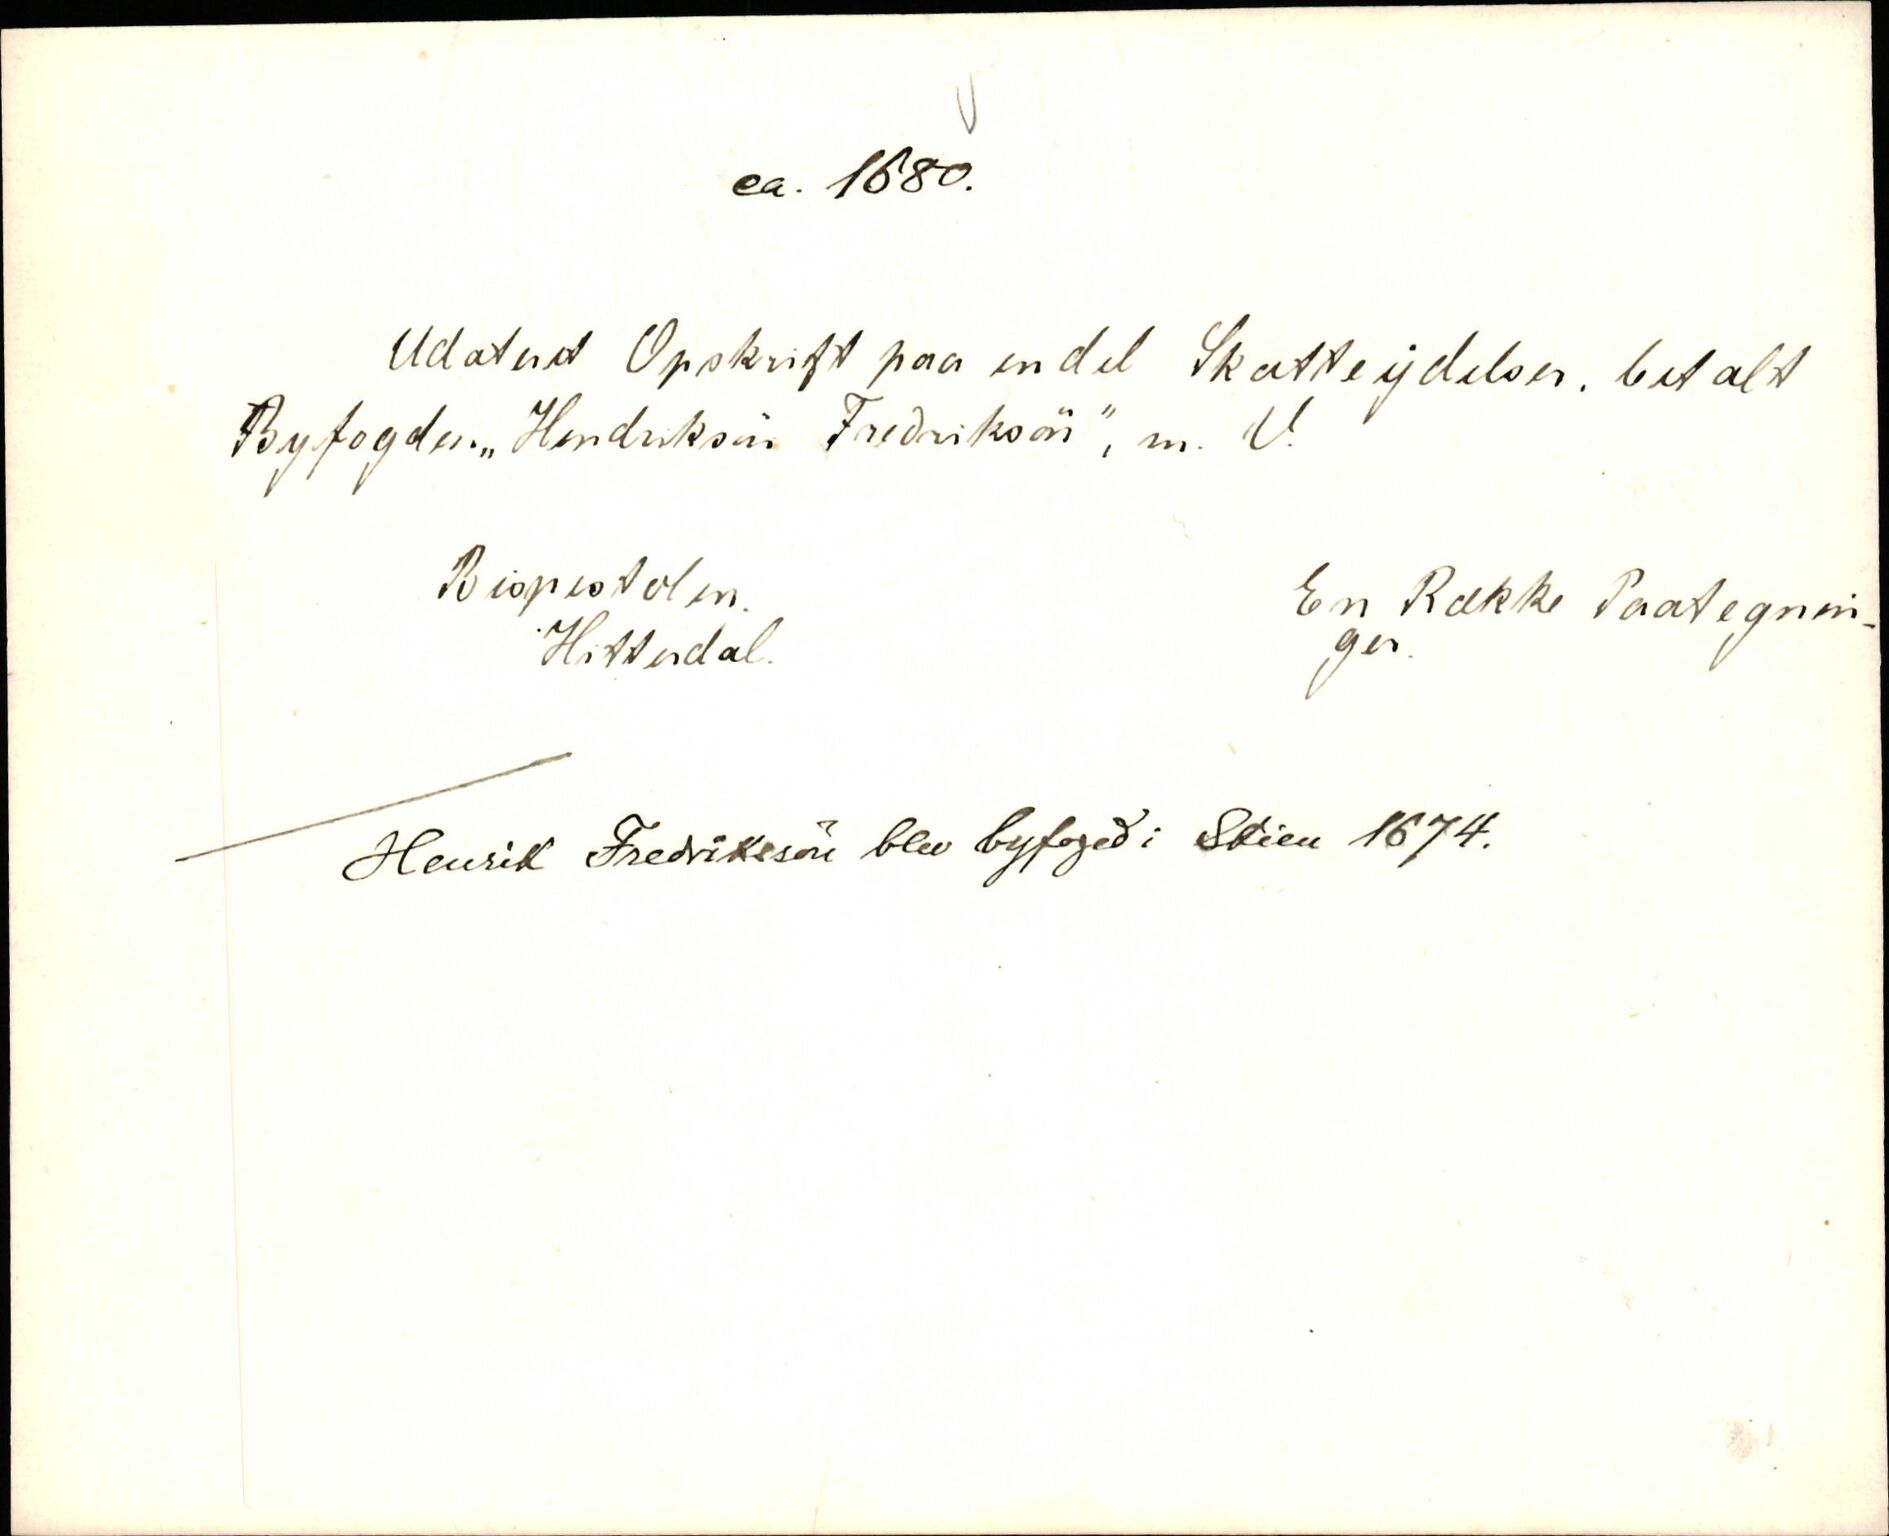 ca. 1680.
Udatert Opskrift paa endel Skatteydelser, betalt
Byfogden „Hendriksön Fredriksön", m. V.
Bispestolen.
Hitterdal.
En Række Paategnin-
ger.
Henrik Fredriksön blev byfoged i Skien 1674.